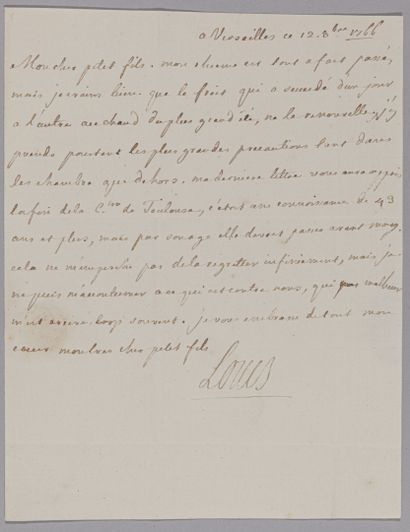 a Versailles ce 12. 8bre 1766
Mon cher petit fils. mon rhume est tout a fait passé,
mais je crains bien que le froit qui a succedé d'un jour
a l'autre au chaud du plus grand été, ne le renouvelle, j'y
prends pourtant les plus grandes precautions tant dans
les chambre que dehors. ma derniere lettre vous aura appris
la fin de la C.tesse de Toulouse, c'étoit une connoissance de 43
ans et plus, mais par son age elle devoit passer avant moy.
cela ne m'empeche pas de la regretter infiniment, mais je
ne puis m'accoutumer a ce qui est contre nous, qui par malheur
m'est arrivé trop souvent. je vous embrasse de tout mon
cœur mon tres cher petit fils
Louis